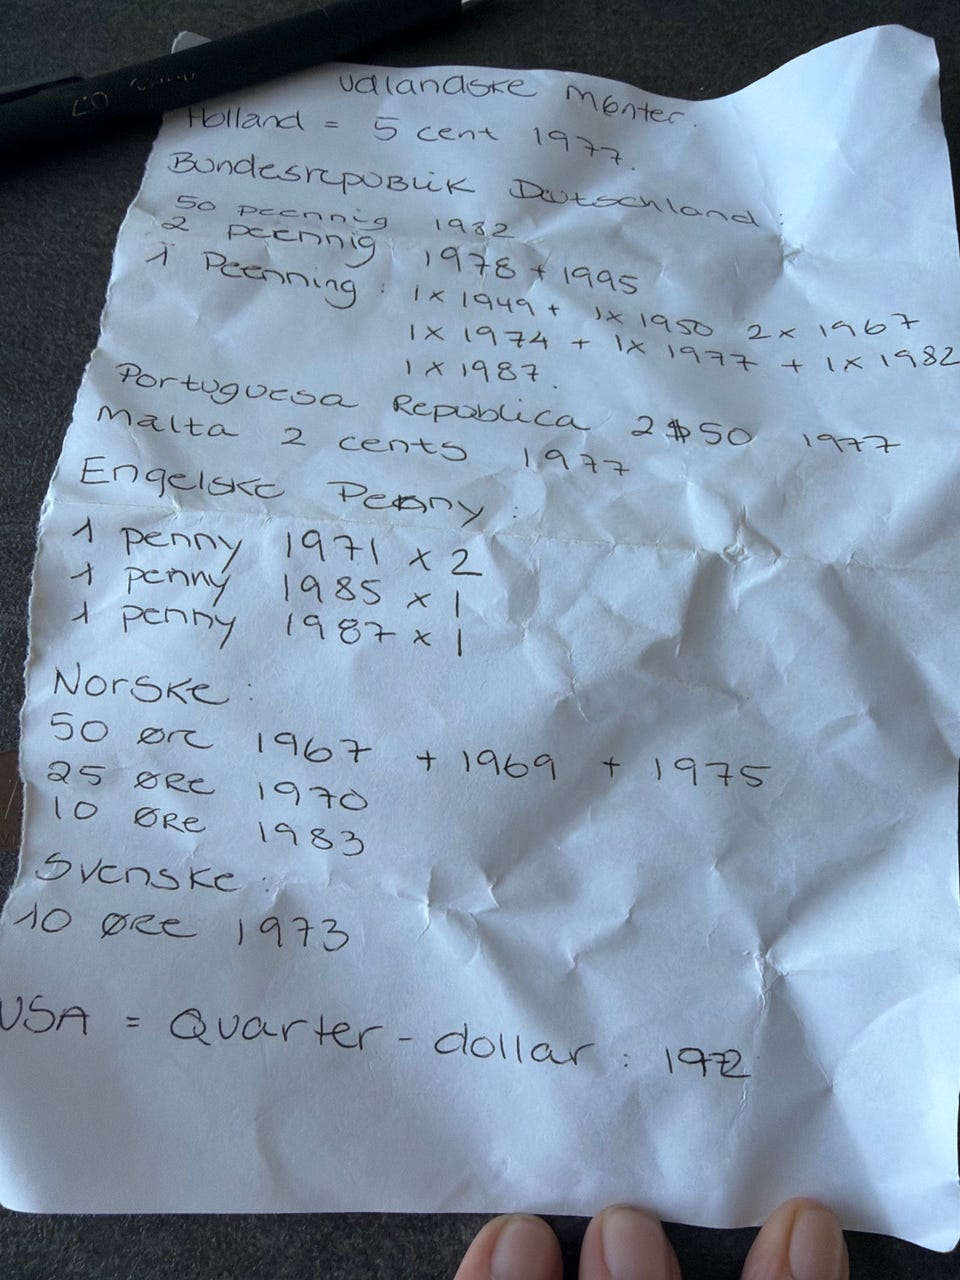 udlandske mønter.
Holland = 5 cent 1977.
Bundesrepublik Deutschland:
50 pfennig 1982
2 pfennig 1978 + 1995
1 Pfenning: 1x 1949 + 1x 1950 2x 1967
1x 1974 + 1x 1977 + 1x 1982
1x 1987.
Portuguesa Republica 2$50 1977
Malta 2 cents 1977
Engelske Penny:
1 penny 1971 x 2
1 penny 1985 x 1
1 penny 1987 x 1
Norske:
50 øre 1967 + 1969 + 1975
25 ØRe 1970
10 ØRe 1983
Svenske:
10 ØRe 1973
USA = Quarter-dollar: 1972